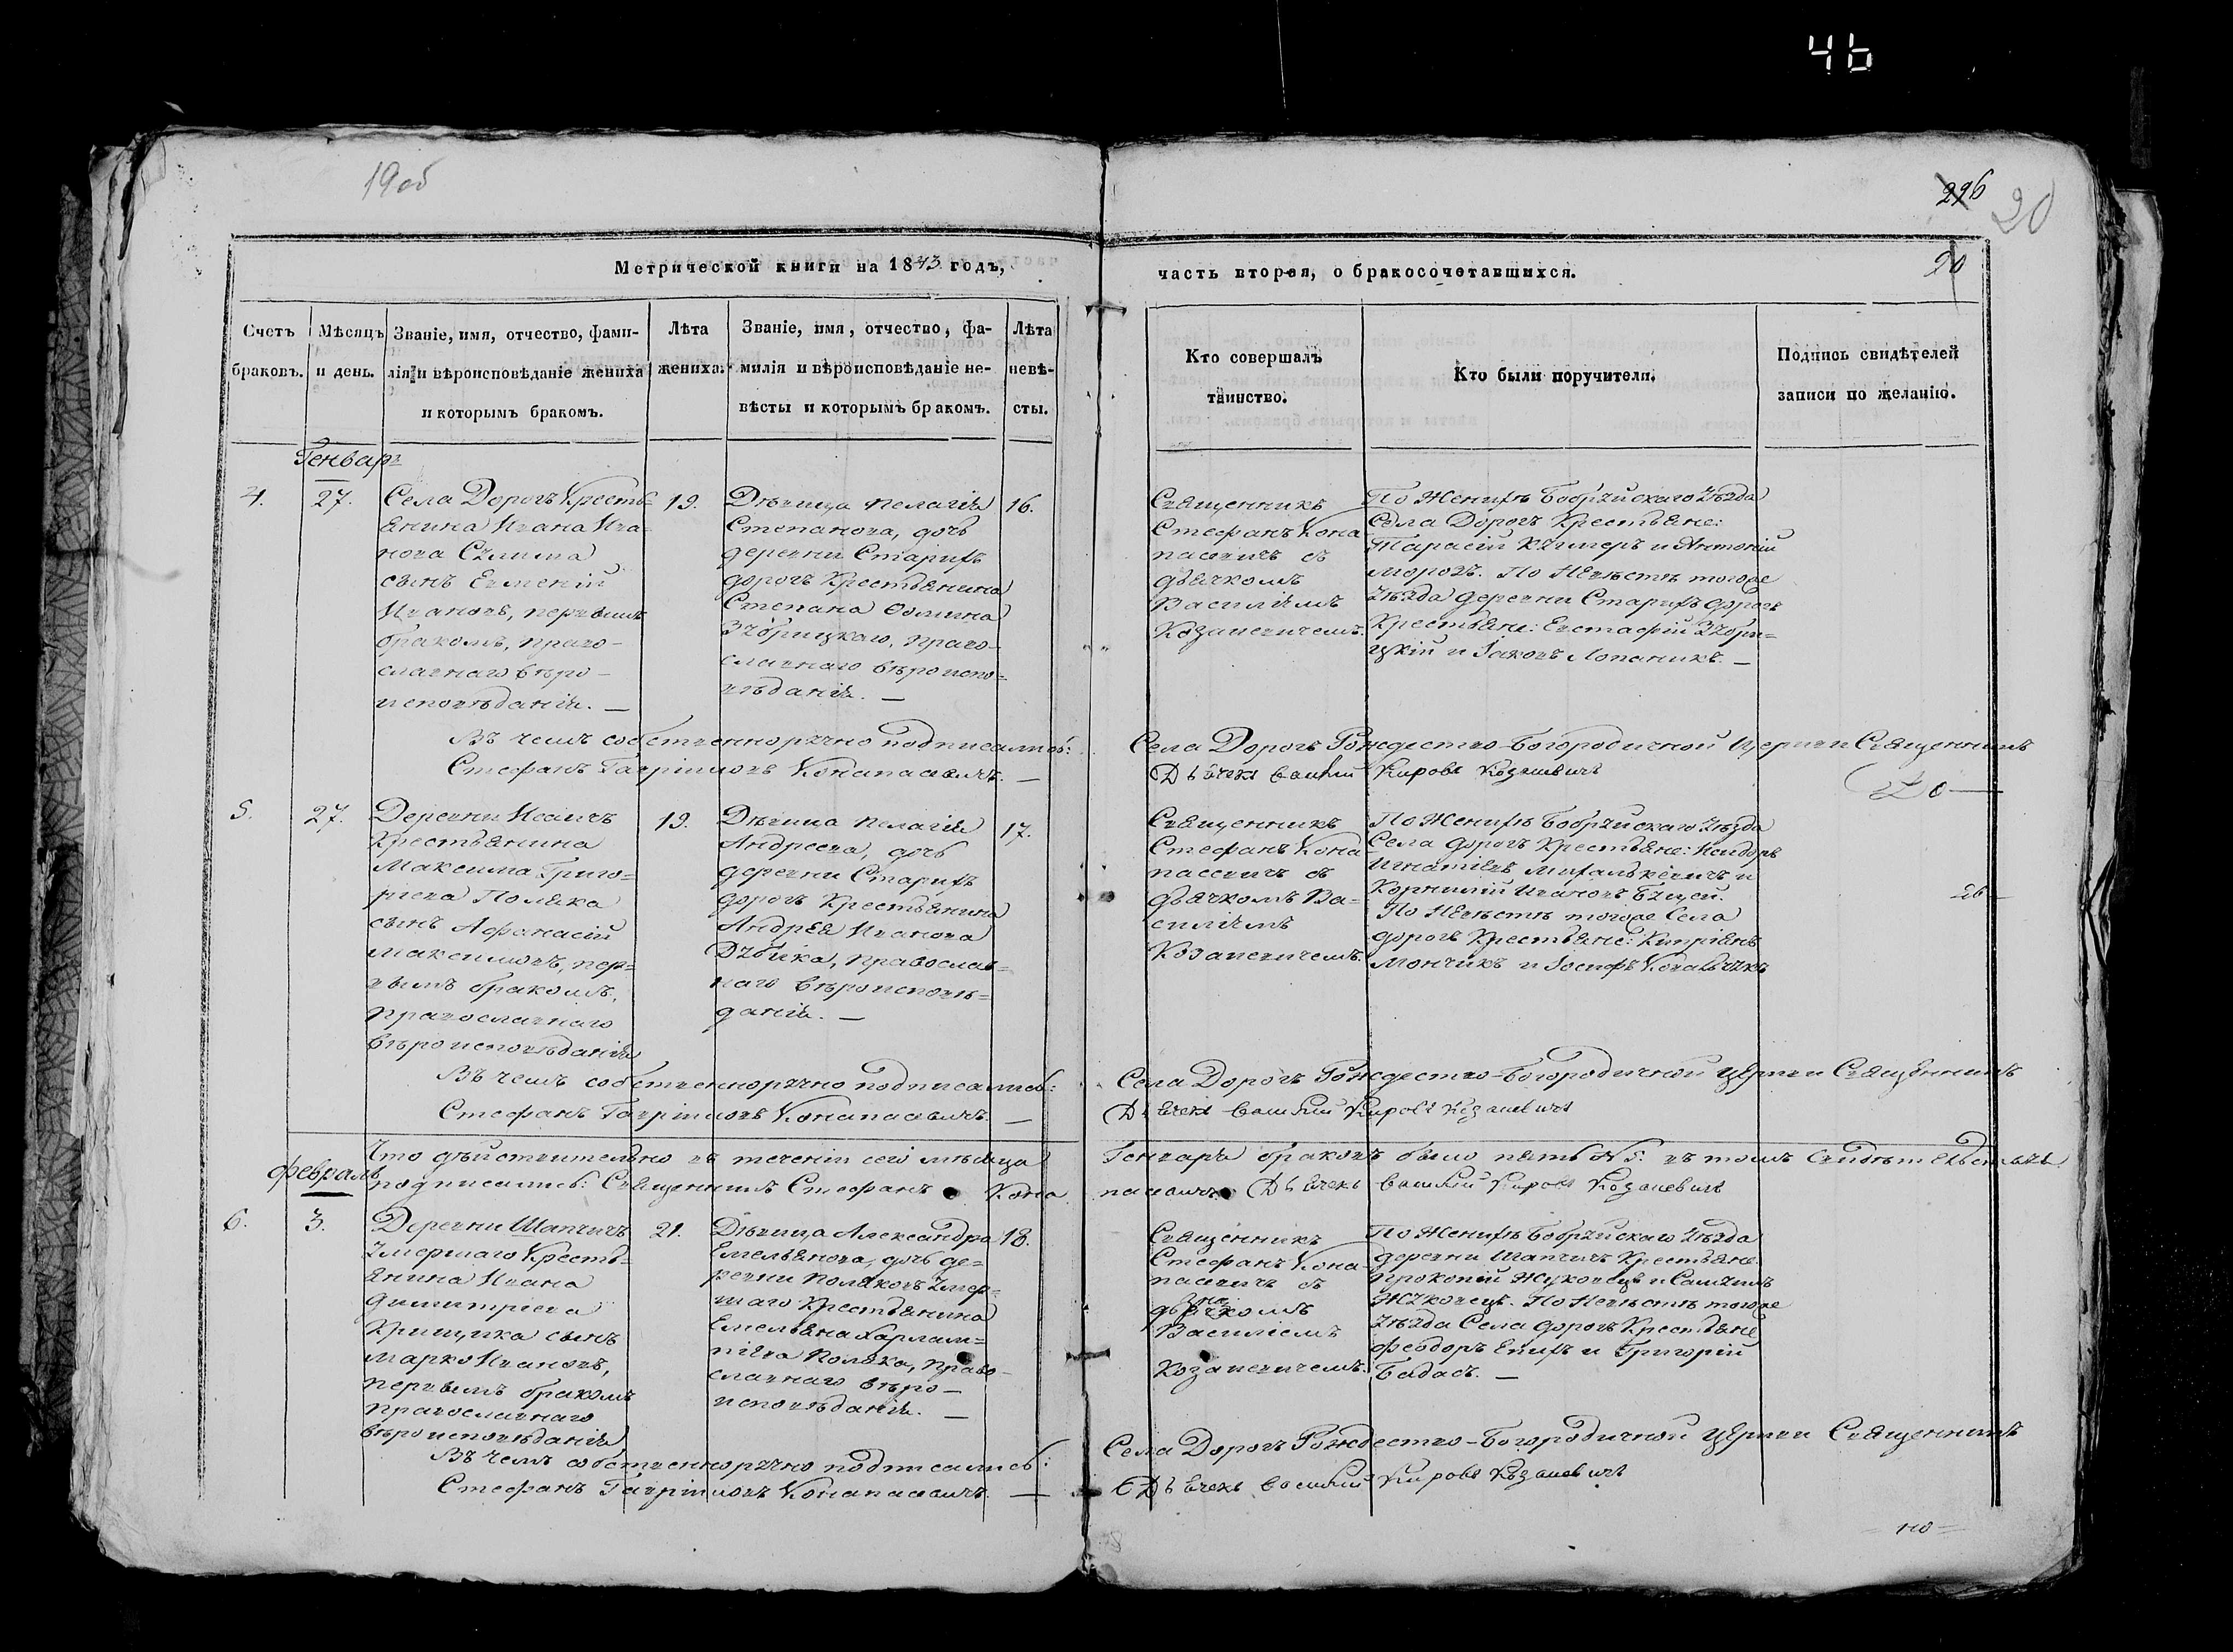 46
19об
296
20
20
Метрической книги на 1843 годъ,
часть вторая, о бракосочетавшихся.
Счетъ браковъ.
Мѣсяцъ и день.
Званіе, имя, отчество, фами-
лія и вѣроисповѣданіе жениха
и которымъ бракомъ.
Лѣта
жениха.
Званіе, имя, отчество, фа-
милія и вѣроисповѣданіе не-
вѣсты и которымъ бракомъ.
Лѣта
невѣ-
сты.
Кто совершалъ
таинство.
Кто были поручители.
Подпись свидѣтелей
записи по желанію.
Генварь
4.
27.
Села Дорогъ Кресть-
янина Ивана Ива-
нова
сынъ Евмений
Ивановъ, первымъ
бракомъ, право-
славнаго вѣро-
исповѣданія. —
19.
Дѣвица Пелагія
Степанова, дочь
деревни Старыхъ
дорогъ Крестьянина
Степана Фомина
Зубрицкаго, право-
славнаго вѣроиспо-
вѣданія. —
16.
Священникъ
Стефанъ Кона
пасевичъ съ
дьячкомъ
Василіемъ
Козакевичемъ.
По Женихѣ Бобруйскаго Уѣзда
Села Дорогъ Крестьяне:
Тарасій Кушнеръ и Антоній
Морозъ. По Невѣстѣ тогоже
Уѣзда деревни Старыхъ дорогъ
Крестьяне: Евстафій Зубри-
цкій и Іаковъ Лопаникъ. —
Въ чемъ собственноручно подписались:
Села Дорогъ Рождество-Богородичной Церкви Священникъ
Стефанъ Гавріиловъ Конапасевичъ. —
Дьячекъ Василий Кировъ Козакевичъ
5.
27.
Деревни
Крестьянина
Максима Григо-
рьева Поляка
сынъ Афанасій
Максимовъ, пер-
вымъ бракомъ,
православнаго
вѣроисповѣданія
19.
Дѣвица Пелагія
Андреева, дочь
деревни Старыхъ
дорогъ Крестьянина
Андрея Иванова
Дубика, православ-
наго вѣроисповѣ-
данія. —
17.
Священникъ
Стефанъ Кона
пасевичъ съ
дьячкомъ Ва-
силіемъ
Козакевичемъ.
По Женихѣ Бобруйскаго Уѣзда
Села дорогъ Крестьяне: Исидоръ
Игнатіевъ Михалькевичъ и
Корнилій Ивановъ Буцей.
По Невѣстѣ тогоже Села
дорогъ Крестьяне: Кипріянъ
Мончикъ и Іосифъ Ковальчукъ
Въ чемъ собственноручно подписались:
Села Дорогъ Рождество-Богородичной Церкви Священникъ
Стефанъ Гавріиловъ Конапасевичъ. —
Дьячекъ Василий Кировъ Козакевичъ
Что дѣйствительно въ теченіи сего мѣсяца
Генваря браковъ было пять № 5. въ томъ Свидѣтельствуя
подписались: Священникъ Стефанъ Кона
пасевичъ Дьячекъ Василий Кировъ Козакевичъ
февраль
6.
3.
Деревни Шапчичъ
Умершаго Кресть-
янина Ивана
Димитріева
Крищика сынъ
Марко Ивановъ,
первымъ бракомъ
православнаго
вѣроисповѣданія
21.
Дѣвица Александра
Емельянова, дочь де-
ревни Поляковъ Умер-
шаго Крестьянина
Емельяна Харлам-
піева Поляка, право-
славнаго вѣро-
исповѣданія. —
18.
Священникъ
Стефанъ Кона-
пасевичъ съ
дьячкомъ
Василіемъ
Козакевичемъ.
По Женихѣ Бобруйскаго Уѣзда
деревни Шапчичъ Крестьяне
Прокопій Жуковецъ и Самуилъ
Жуковецъ. По Невѣстѣ тогоже
Уѣзда Села дорогъ Крестьяне
Феодоръ Епихъ и Григорій
Бадасъ. —
Въ чемъ собственноручно подписались:
Села Дорогъ Рождество-Богородичной Церкви Священникъ
Стефанъ Гавріиловъ Конапасевичъ. —
Дьячекъ Василий Кировъ Козакевичъ